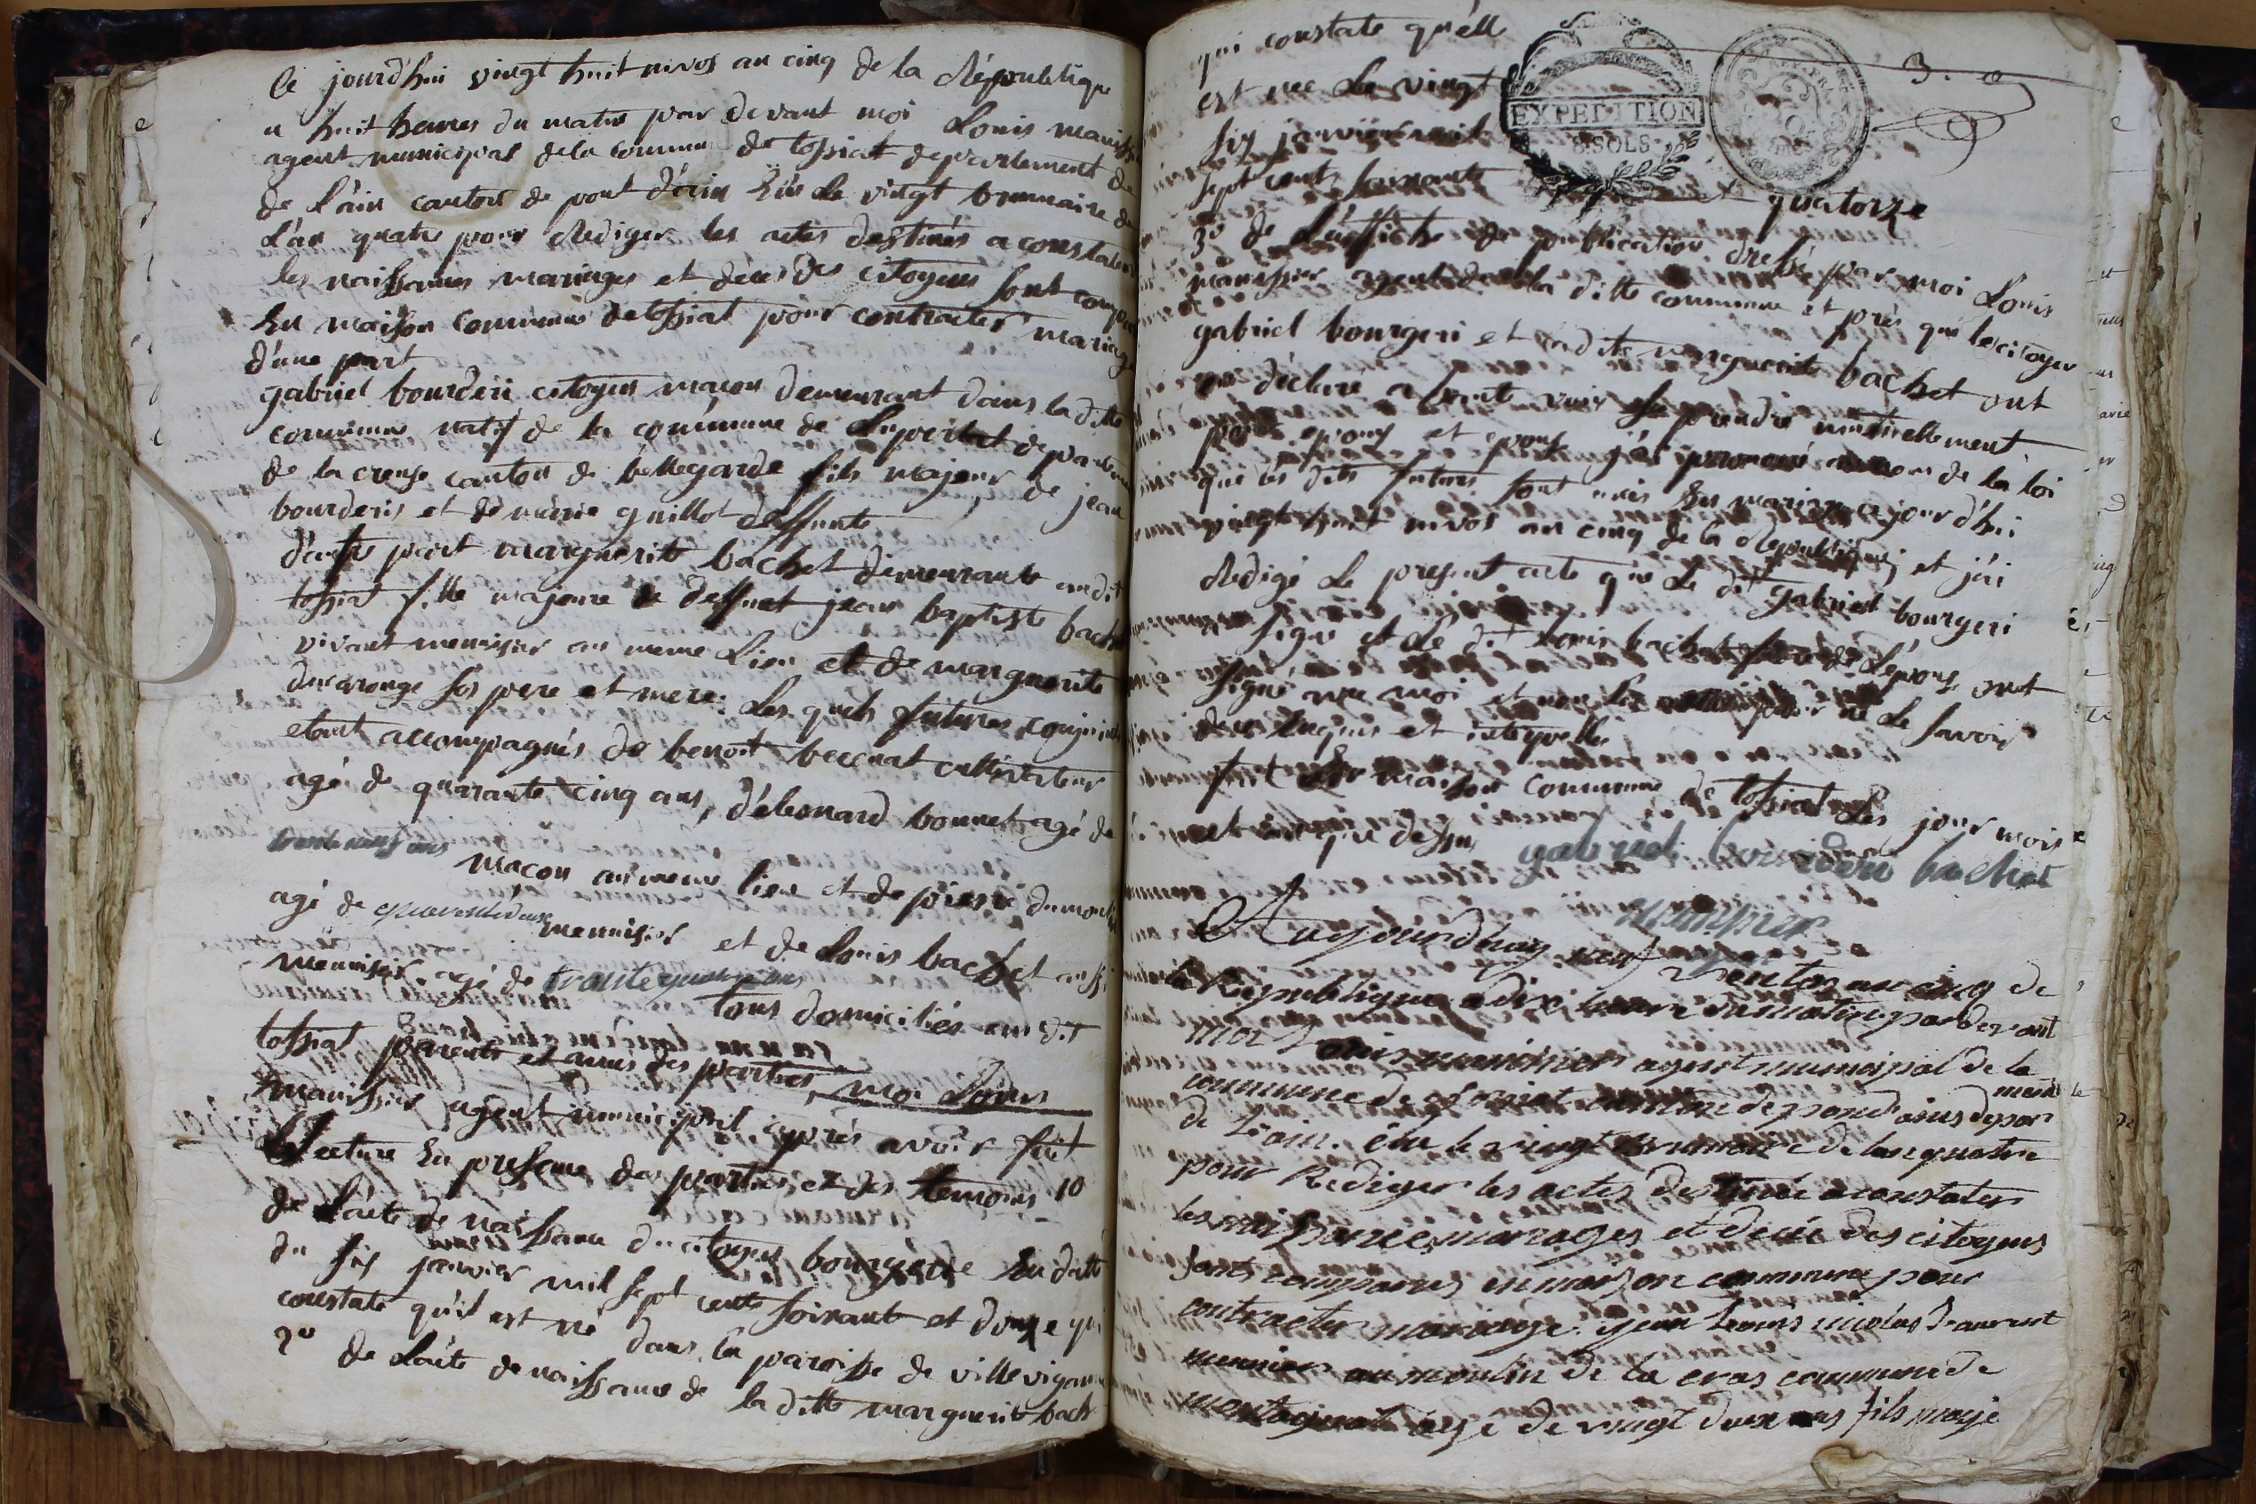 Ce jourd'hui vingt huit nivos an cinq de la République
a huit heures du matin par devant moi Louis maniss
agent municipal dela commune de tossiat departement de
de l'ain canton de pont d'ain élu le vingt brumaire de
l'an quatre pour Rediger les actes destinés a constater
les naissances mariages et décès des citoyens sont compar
En maison commune detossiat pour contracter mariage
d'une part
gabriel bourderi citoyen maçon demeurant dans la ditte
commune natif de la commune de Lupersat departem
de la creuse canton de bellegarde fils majeur de jean
bourderis et de marie guillot deffunte
d'autre part marguerite bachet demeurante audit
tossiat fille majeure de deffunt jean baptiste bach
vivant menuisier au meme Lieu et de marguerite
ducarouge ses pere et mere. Les quels futures conjoints
etant accompagnés de benoit beccnat cultivateur
agé de quarante cinq ans, de leonard bonnet agé de
trente neuf ans
maçon au meme lieu et de pierre dumont
agé de quarente deux menuisier et de Louis bachet aussi
menuisier agé de trante quatre ans
tous domiciliés audit
tossiat parents et amis des parties, moi Louis
manissier agent municipal apprès avoir fait
Lecture En presence des parties et des temoins 10
de l'acte de naissance du citoyen bourgerie En datte
du six janvier mil sept cents soixante et douze qui
constate qu'il est né dans la paroisse de villevigan
2º de l'acte de naissance de la ditte marguerite bach
qui constate qu'elle
est née le vingt
six janvier mil
sept cents soixante et quatorze
EXPEDITION
8 SOLS
3.
3º de l'affiche de publication dressé par moi Louis
manissier agent de la ditte commune et près que le citoyen
gabriel bourgeri et la ditte marguerite bachet ont
déclaré a haute voix se prendre mutuellement
pour epoux et epouse j'ai prononcé au nom de la loi
que les dits futurs sont unis En mariage ce jour d'hui
vingt huit nivos an cinq de la Republique et j'ai
Redigé le present acte que le dit gabriel bourgeri
signe et le dit Louis bachet frere de l'epouse ont
signé avec moi et non les pour ne le savoir
deux enquis et interpellés
fait En maison commune de tossiat Les jour mois
et an que dessus
gabriel bourderi bachet
manissier
Aujourd'huy neuf ventos an cinq de
la Republique a dix heure du matin par devant
moi Louis manissier agent municipal de la
commune de tossiat canton de pond d'ains depar
ment
de l'ain. élu le vingt brumaire de lan quatre
pour Rediger les actes destinée a constater
les naissance mariages et décée des citoyens
sont comparus en maison commune pour
contracter mariage. jean Louis nicolas
meunier au moulin de la cras commune de
montagnat agé de vingt deux ans fils maje